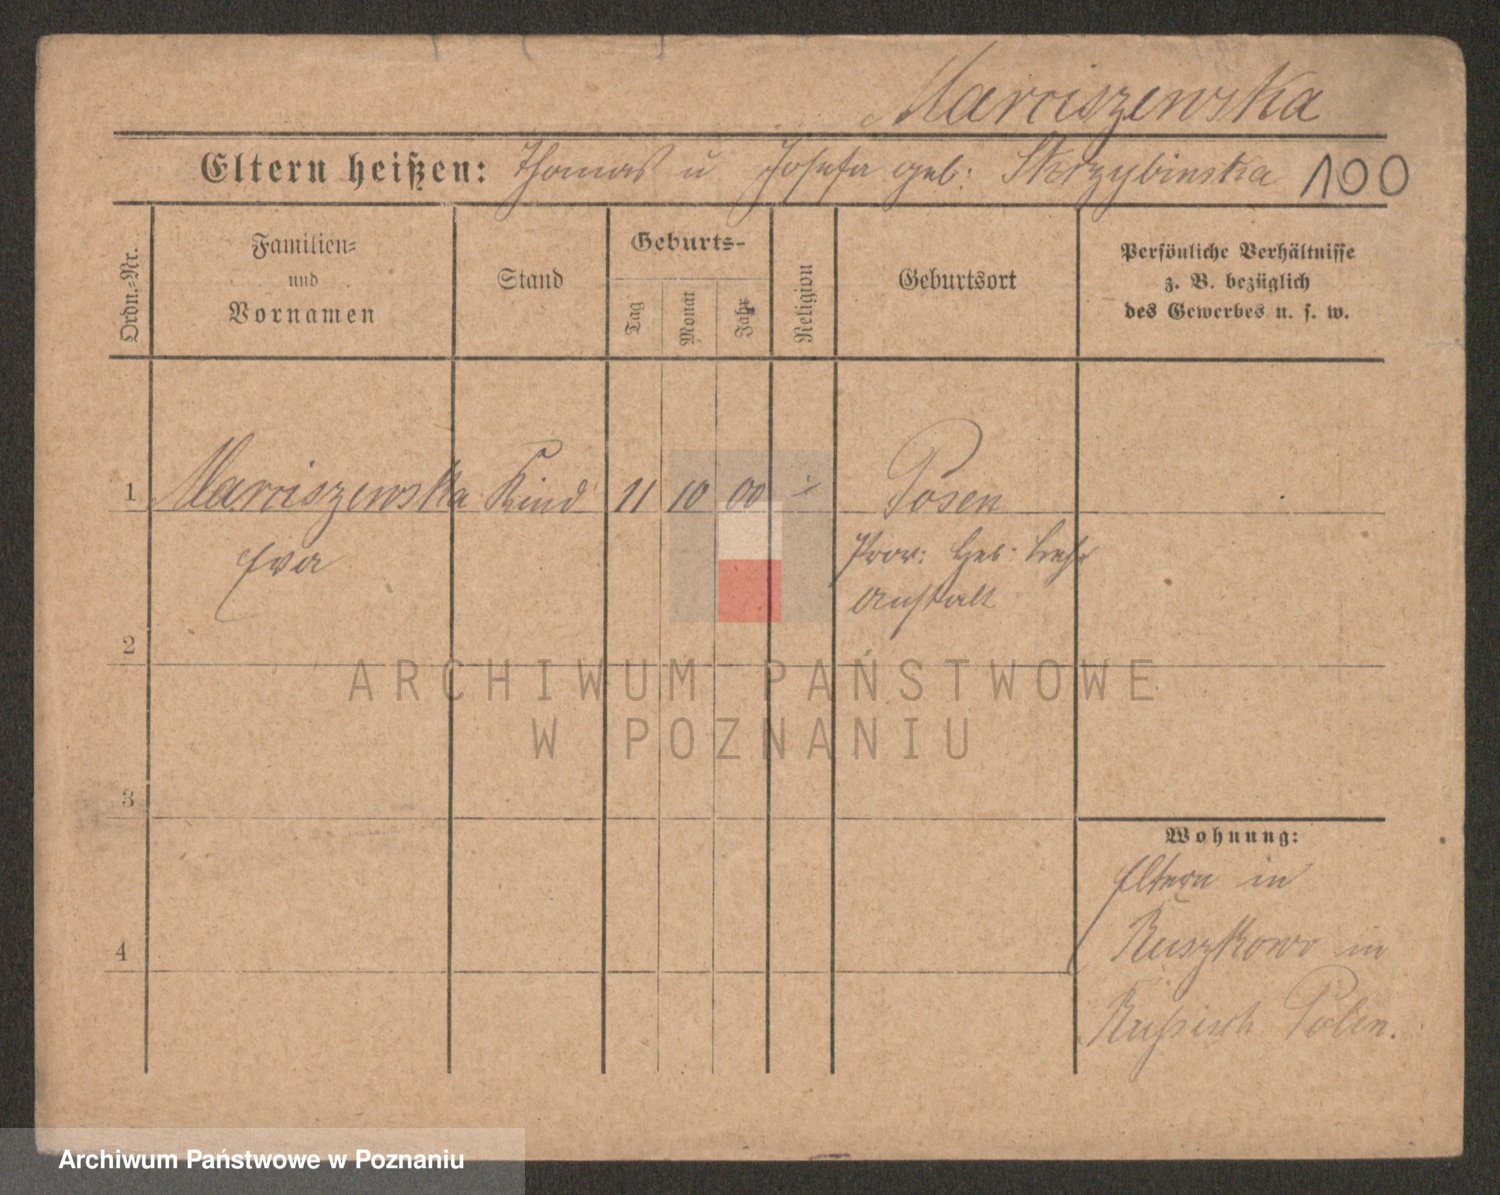 Marciszewska
Eltern heißen: Thomas u Josefa geb: Skrzybinska 100
Ordn.-Nr.
Familien-
und
Vornamen
Stand
Geburts-
Tag
Monat
Jahr
Religion
Geburtsort
Persönliche Verhältnisse
z. B. bezüglich
des Gewerbes u. s. w.
1 Marciszewska Kind 11 10 00 Posen
Eva Prov: Heb: Lehr
Anstalt
2
ARCHIWUM PAŃSTWOWE
W POZNANIU
3
Wohnung:
Eltern in
4 Ruszkowo in
Russisch Polen.
Archiwum Państwowe w Poznaniu